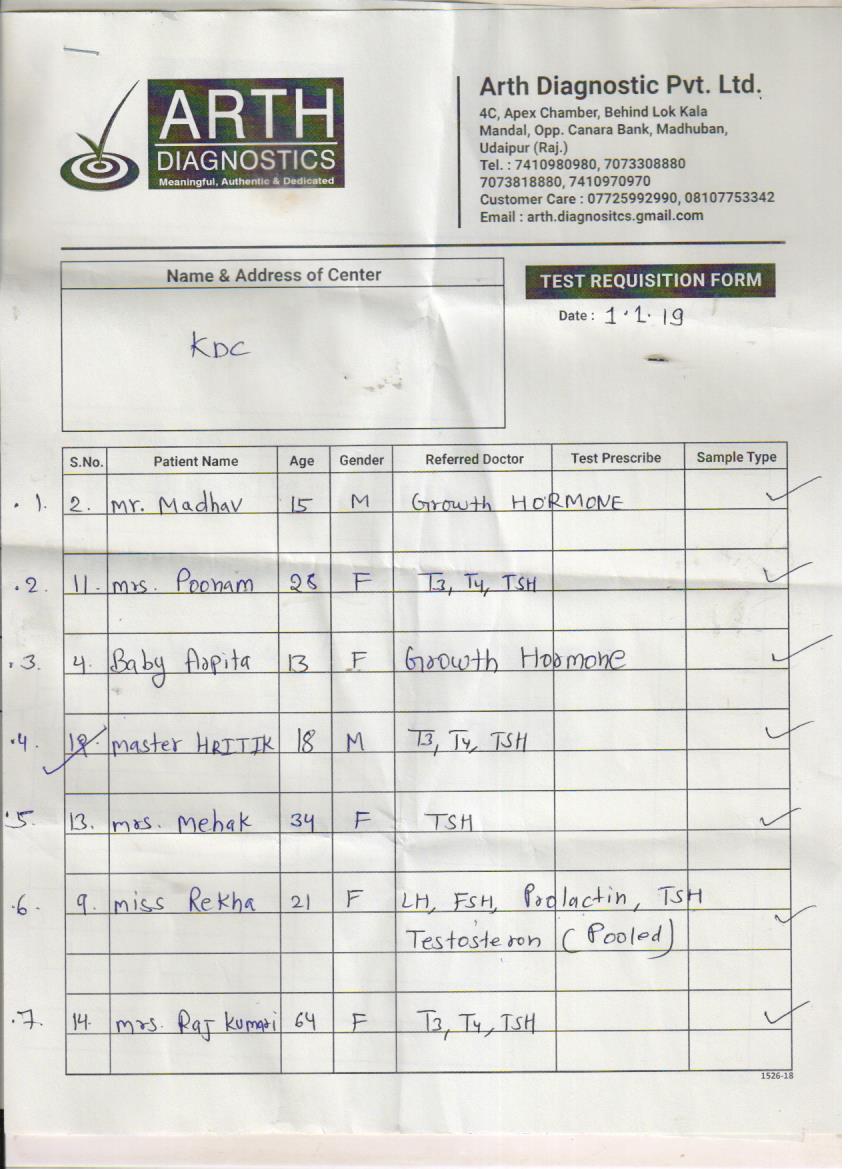 ARTH
DIAGNOSTICS
Meaningful, Authentic & Dedicated
Arth Diagnostic Pvt. Ltd.
4C, Apex Chamber, Behind Lok Kala
Mandal, Opp. Canara Bank, Madhuban,
Udaipur (Raj.)
Tel. : 7410980980, 7073308880
7073818880, 7410970970
Customer Care : 07725992990, 08107753342
Email : arth.diagnositcs.gmail.com
Name & Address of Center
KDC
TEST REQUISITION FORM
Date : 1.1.19
S.No. Patient Name Age Gender Referred Doctor Test Prescribe Sample Type
1. 2. Mr. Madhav 15 M Growth HORMONE
2. 11. Mrs. Poonam 28 F T3, T4, TSH
3. 4. Baby Arpita 13 F Growth Hormone
4. 12. Master HRITIK 18 M T3, T4, TSH
5. 13. Mrs. Mehak 34 F TSH
6. 9. Miss Rekha 21 F LH, FSH, Prolactin, TSH
Testosteron (Pooled)
7. 14. Mrs. Raj Kumari 64 F T3, T4, TSH
1526-18